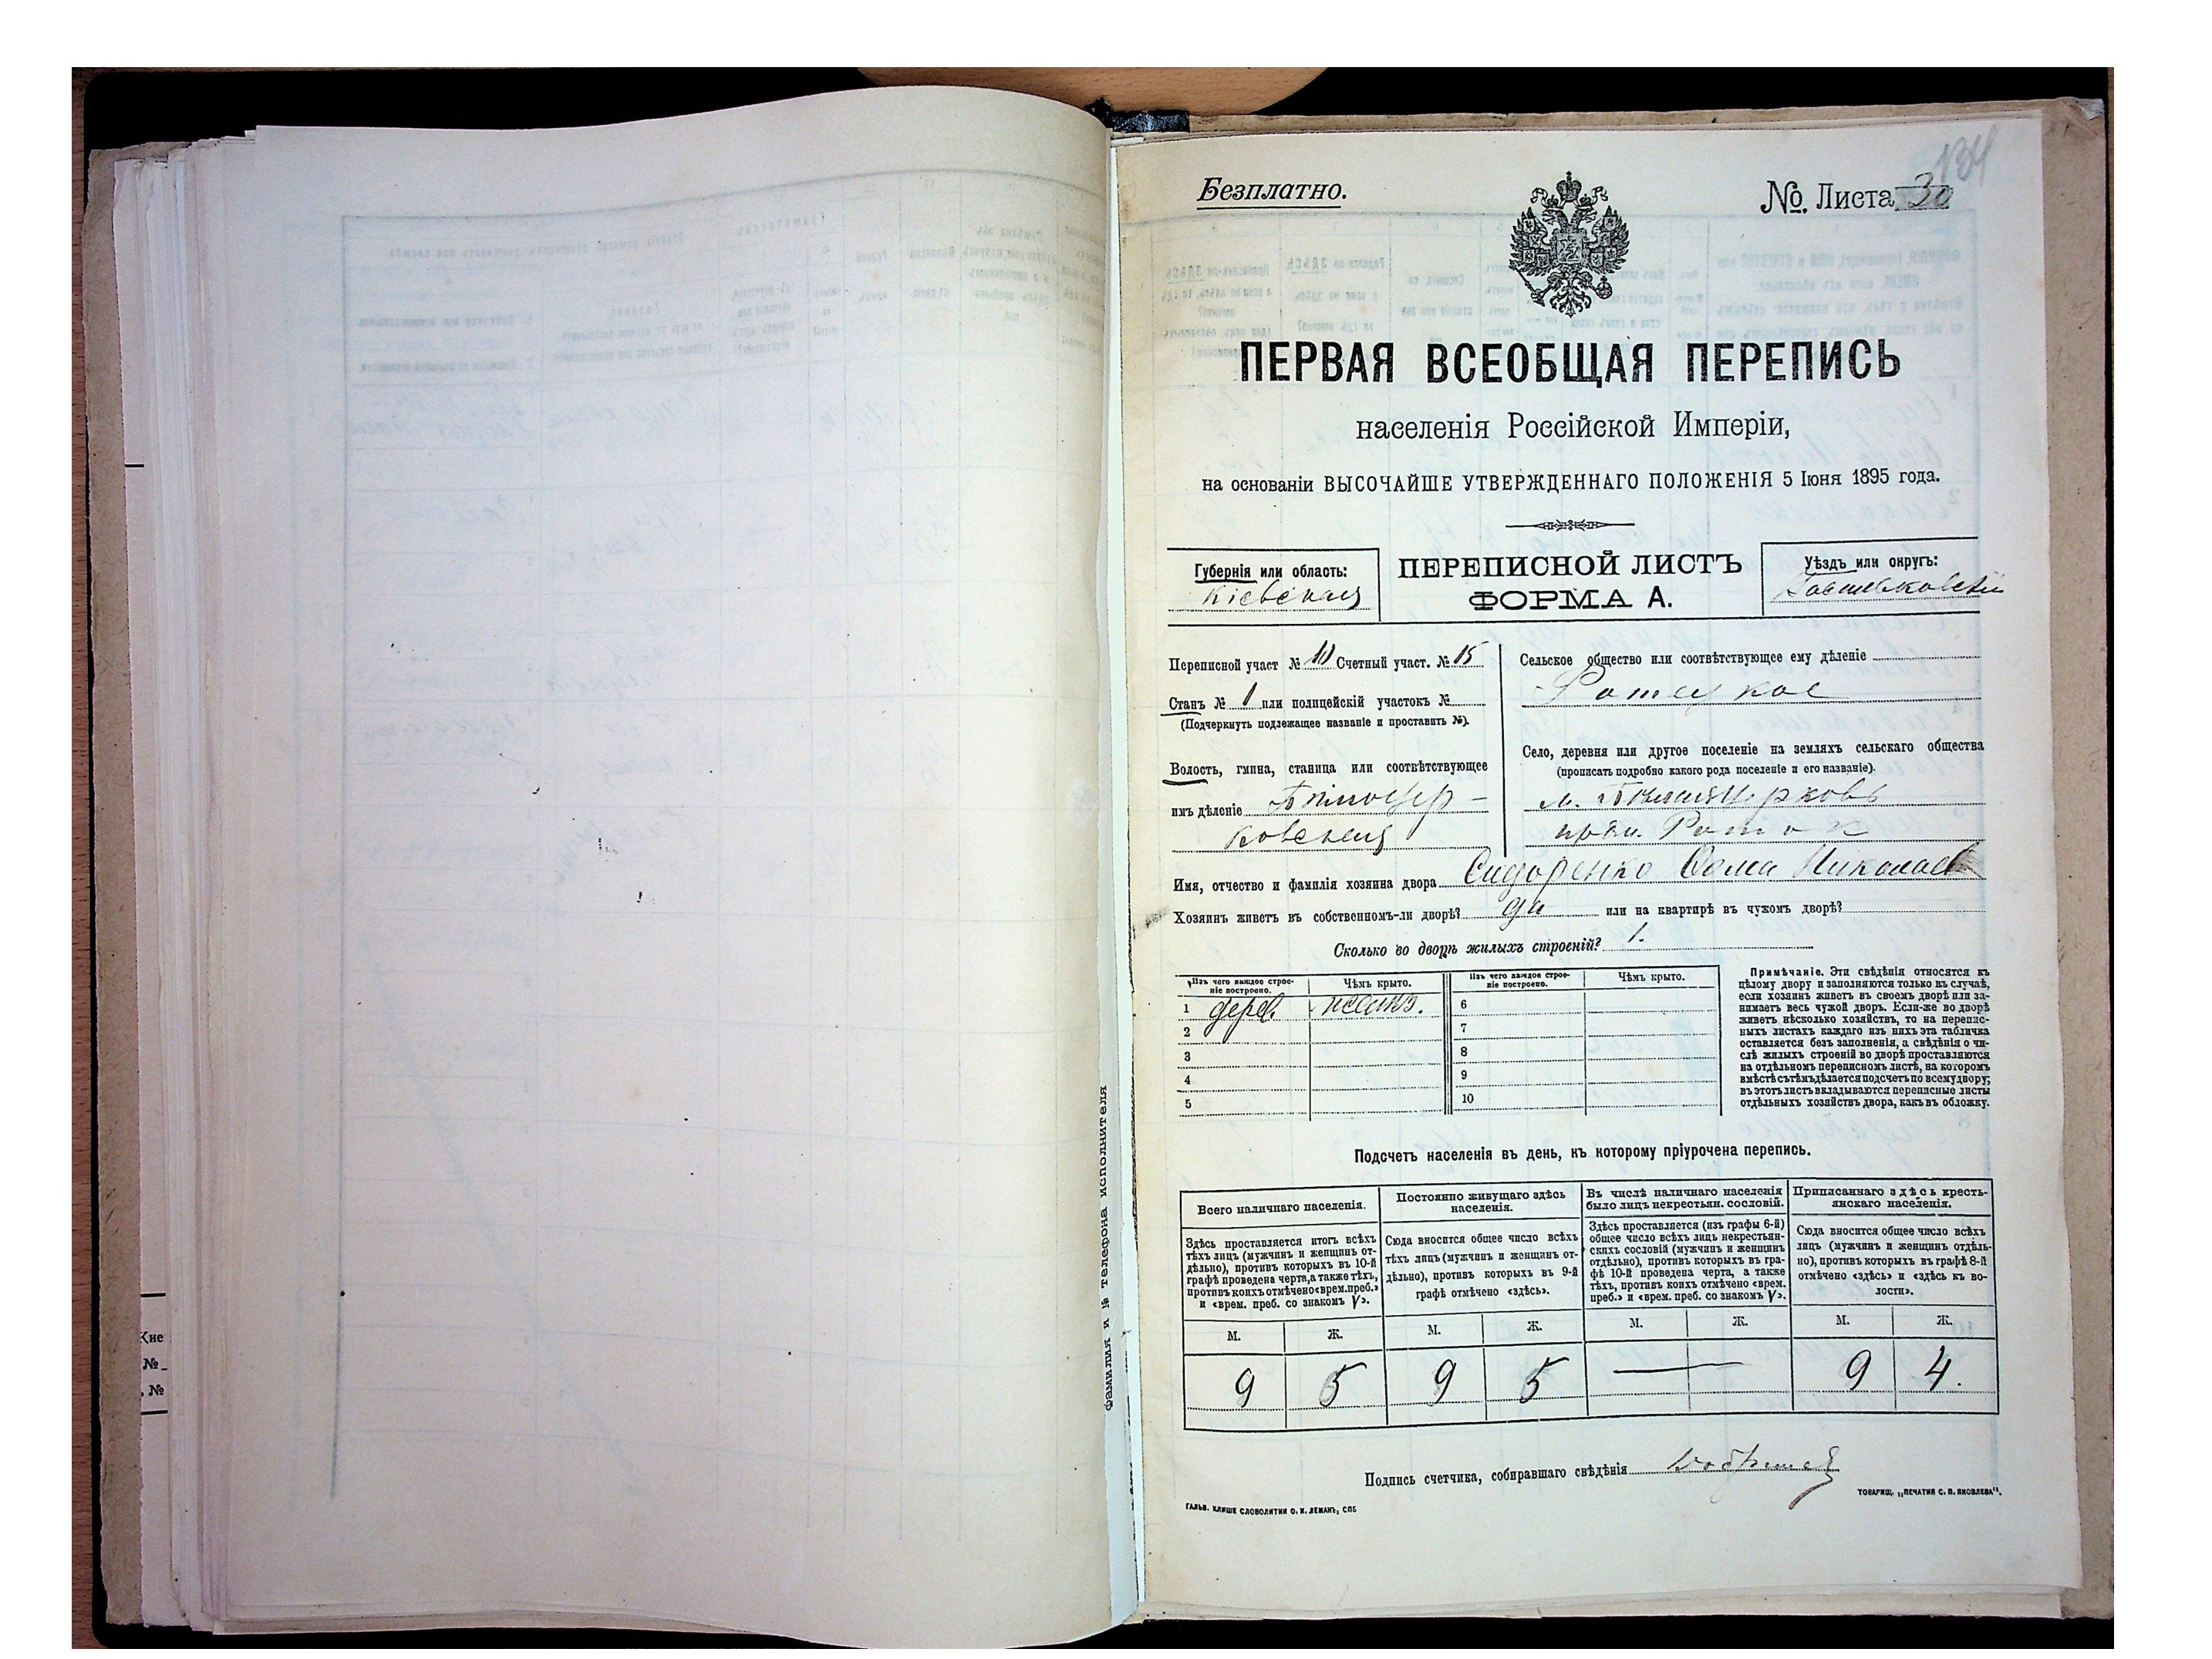 134
Безплатно.
№. Листа 30
ПЕРВАЯ ВСЕОБЩАЯ ПЕРЕПИСЬ
населенія Россійской Имперіи,
на основаніи ВЫСОЧАЙШЕ УТВЕРЖДЕННАГО ПОЛОЖЕНІЯ 5 Іюня 1895 года.
Губернія или область:
Кіевская
ПЕРЕПИСНОЙ ЛИСТЪ
ФОРМА А.
Уѣздъ или округъ:
Васильковскій
Переписной участ № 10 Счетный участ. № 15
Станъ № 1 или полицейскій участокъ №
(Подчеркнуть подлежащее названіе и проставить №).
Волость, гмина, станица или соотвѣтствующее
имъ дѣленіе Бѣлоцер-
ковская
Сельское общество или соотвѣтствующее ему дѣленіе
Ротецкое
Село, деревня или другое поселеніе на земляхъ сельскаго общества
(прописать подробно какого рода поселеніе и его названіе).
м. Бѣлая Церковь
Роток
Имя, отчество и фамилія хозяина двора Сидоренко Фома Николаев
Хозяинъ живетъ въ собственномъ-ли дворѣ? да или на квартирѣ въ чужомъ дворѣ?
Сколько во дворѣ жилыхъ строеній? 1.
Изъ чего каждое строе-
ніе построено.
Чѣмъ крыто.
Изъ чего каждое строе-
ніе построено.
Чѣмъ крыто.
1 дерев. 6
2 7
3 8
4 9
5 10
Примѣчаніе. Эти свѣдѣнія относятся къ
цѣлому двору и заполняются только въ случаѣ,
если хозяинъ живетъ въ своемъ дворѣ или за-
нимаетъ весь чужой дворъ. Если-же во дворѣ
живетъ нѣсколько хозяйствъ, то на перепис-
ныхъ листахъ каждаго изъ нихъ эта табличка
оставляется безъ заполненія, а свѣдѣнія о чи-
слѣ жилыхъ строеній во дворѣ проставляются
на отдѣльномъ переписномъ листѣ, на которомъ
вмѣстѣ съ тѣмъ дѣлается подсчетъ по всему двору;
въ этотъ листъ вкладываются переписные листы
отдѣльныхъ хозяйствъ двора, какъ въ обложку.
Подсчетъ населенія въ день, къ которому пріурочена перепись.
Всего наличнаго населенія.
Здѣсь проставляется итогъ всѣхъ
тѣхъ лицъ (мужчинъ и женщинъ от-
дѣльно), противъ которыхъ въ 10-й
графѣ проведена черта, а также тѣхъ,
противъ коихъ отмѣчено «врем. преб.»
и «врем. преб. со знакомъ V».
Постоянно живущаго здѣсь
населенія.
Сюда вносится общее число всѣхъ
тѣхъ лицъ (мужчинъ и женщинъ от-
дѣльно), противъ которыхъ въ 9-й
графѣ отмѣчено «здѣсь».
Въ числѣ наличнаго населенія
было лицъ некрестьян. сословій.
Здѣсь проставляется (изъ графы 6-й)
общее число всѣхъ лицъ некрестьян-
скихъ сословій (мужчинъ и женщинъ
отдѣльно), противъ которыхъ въ гра-
фѣ 10-й проведена черта, а также
тѣхъ, противъ коихъ отмѣчено «врем.
преб.» и «врем. преб. со знакомъ V».
Приписаннаго здѣсь кресть-
янскаго населенія.
Сюда вносится общее число всѣхъ
лицъ (мужчинъ и женщинъ отдѣль-
но), противъ которыхъ въ графѣ 8-й
отмѣчено «здѣсь» и «здѣсь къ во-
лости».
М. Ж. М. Ж. М. Ж. М. Ж.
9 5 9 5 — 9 4.
Подпись счетчика, собиравшаго свѣдѣнія
ГАЛЬВ. КЛИШЕ СЛОВОЛИТНИ О. И. ЛЕМАНЪ, СПБ
ТОВАРИЩ. „ПЕЧАТНЯ С. П. ЯКОВЛЕВА".
Фамилия и № телефона исполнителя
Кие
№
, №